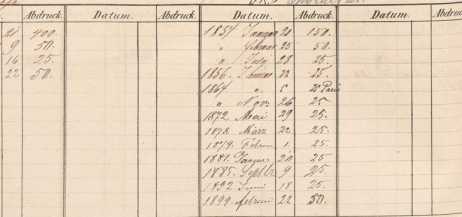 Abdruck. Datum. Abdruck. Datum. Abdruck. Datum. Abdruck
21 400. 1854 Januar 20 150.
9 50. " Februar 25 50.
16 25. " July 28 25.
22 50. 1856. Januar 22 25.
1867 " 5 25 Paris
" Nov 26 25
1872. Mai 29 25.
1878. März 22. 25.
1879. Febru 1. 25.
1881. Januar 20 25
1885. Septbr 9 25.
1892. Juni 18 25.
1899. Februar 22 50.